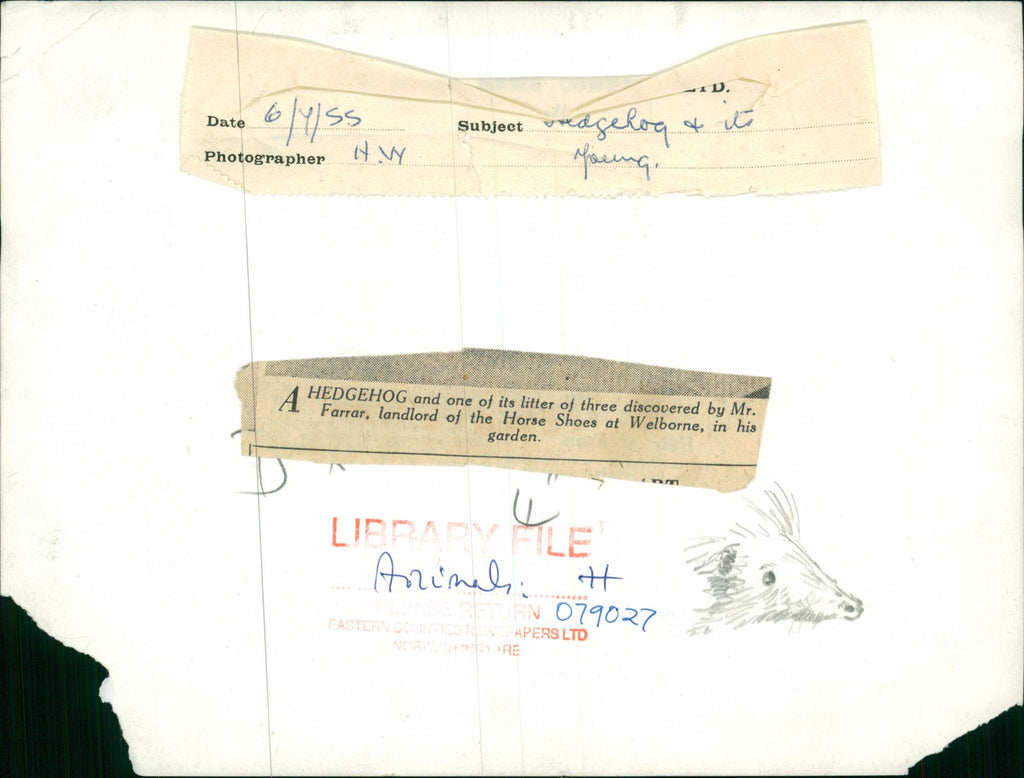 LTD.
Date 6/7/55 Subject Hedgehog & its
Photographer H.W young.
A HEDGEHOG and one of its litter of three discovered by Mr.
Farrar, landlord of the Horse Shoes at Welborne, in his
garden.
4"
LIBRARY FILE
Animals. H
PLEASE RETURN 079027
EASTERN COUNTIES NEWSPAPERS LTD
NORWICH